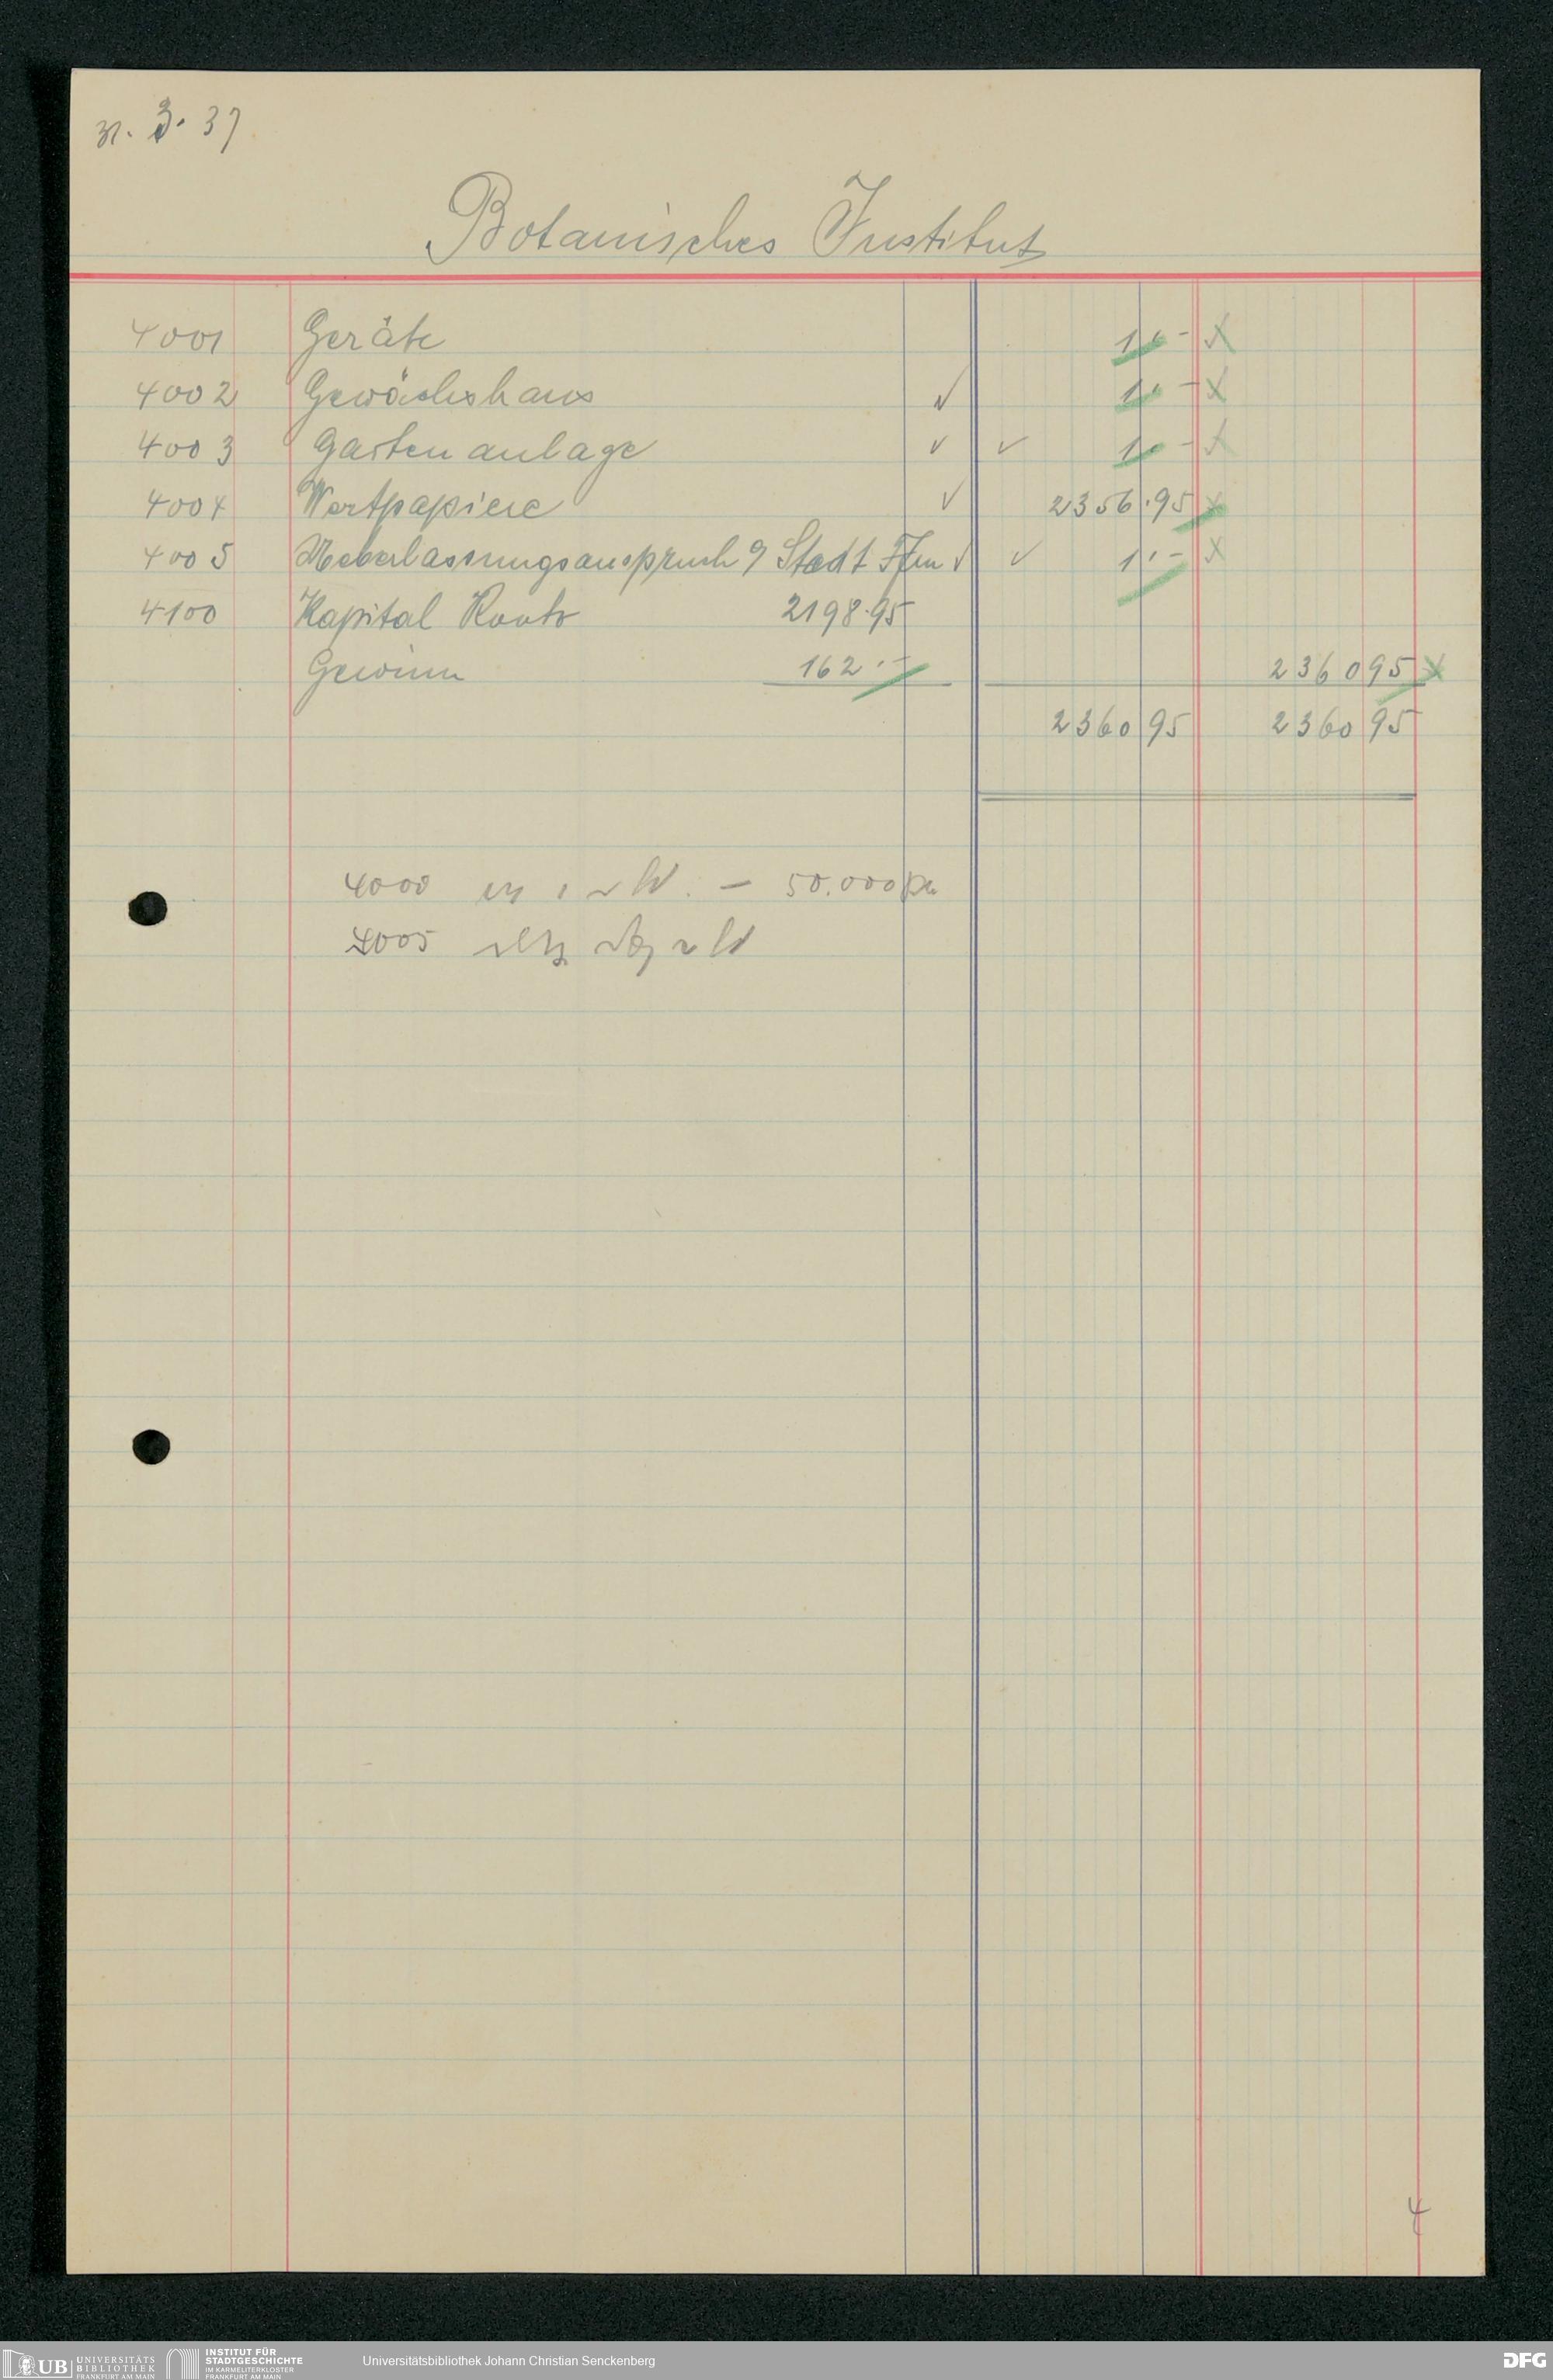 31. 3. 37
Botanisches Institut
4001 Geräte 1.-
4002 Gewächshaus 1.-
4003 Gartenanlage 1.-
4004 Wertpapiere 2356.95
4005 Ueberlassungsanspruch g Stadt Ffm 1.-
4100 Kapital Konto 2198.95
Gewinn 162.- 2360 95
2360 95 2360 95
4000 - 50.000
4005
4
UB UNIVERSITÄTS BIBLIOTHEK FRANKFURT AM MAIN
INSTITUT FÜR STADTGESCHICHTE IM KARMELITERKLOSTER FRANKFURT AM MAIN
Universitätsbibliothek Johann Christian Senckenberg
DFG